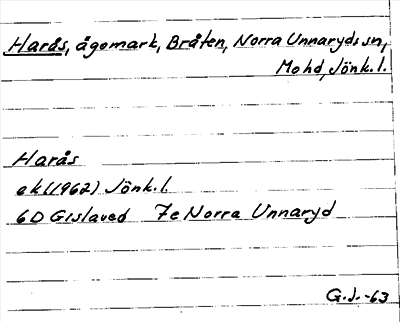 Harås, ägomark, Bråten, Norra Unnaryds sn,
Mo hd, Jönk. l.
Harås
ek (1962) Jönk. l.
6D Gislaved 7e Norra Unnaryd
G.J.-63